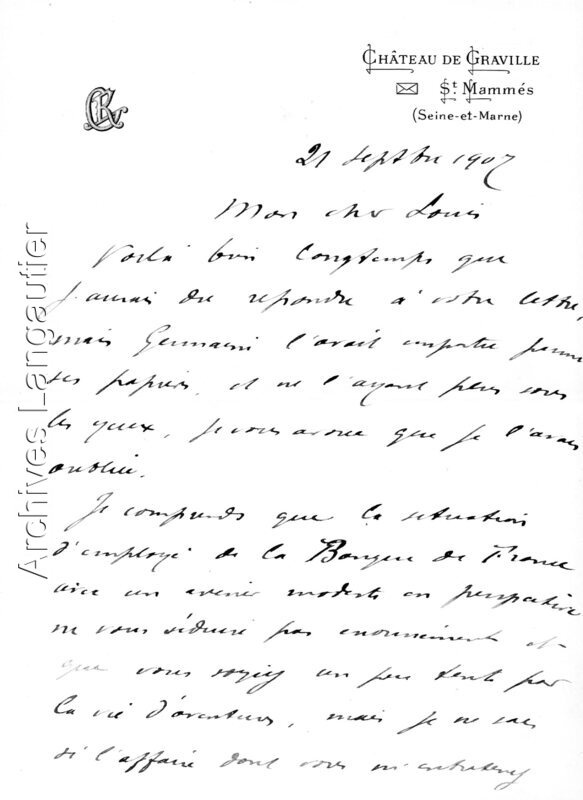 CHÂTEAU DE GRAVILLE
St. Mammés
(Seine-et-Marne)
21 septbre 1907
Mon cher Louis
Voilà bien longtemps que
j'aurais du repondre à votre lettre,
mais Germaine l'avait emportée parmi
ses papiers, et ne l'ayant plus sous
les yeux, je vous avoue que je l'avais
oubliée.
Je comprends que la situation
d'employé de la Banque de France
avec un avenir modeste en perspective
ne vous séduise pas énormément et
que vous soyiez un peu tenté par
la vie d'aventures, mais je ne sais
si l'affaire dont vous m'entretenez
Archives Langautier